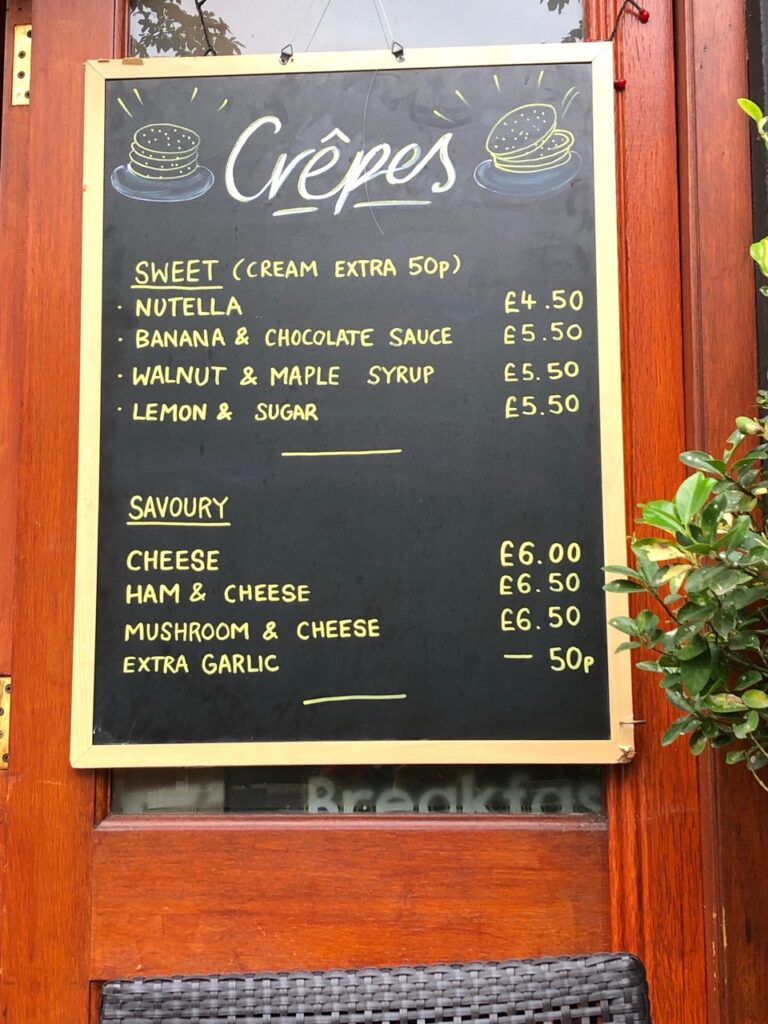 Crêpes
SWEET (CREAM EXTRA 50p)
· NUTELLA £4.50
· BANANA & CHOCOLATE SAUCE £5.50
· WALNUT & MAPLE SYRUP £5.50
· LEMON & SUGAR £5.50
SAVOURY
CHEESE £6.00
HAM & CHEESE £6.50
MUSHROOM & CHEESE £6.50
EXTRA GARLIC — 50p
Breakfas